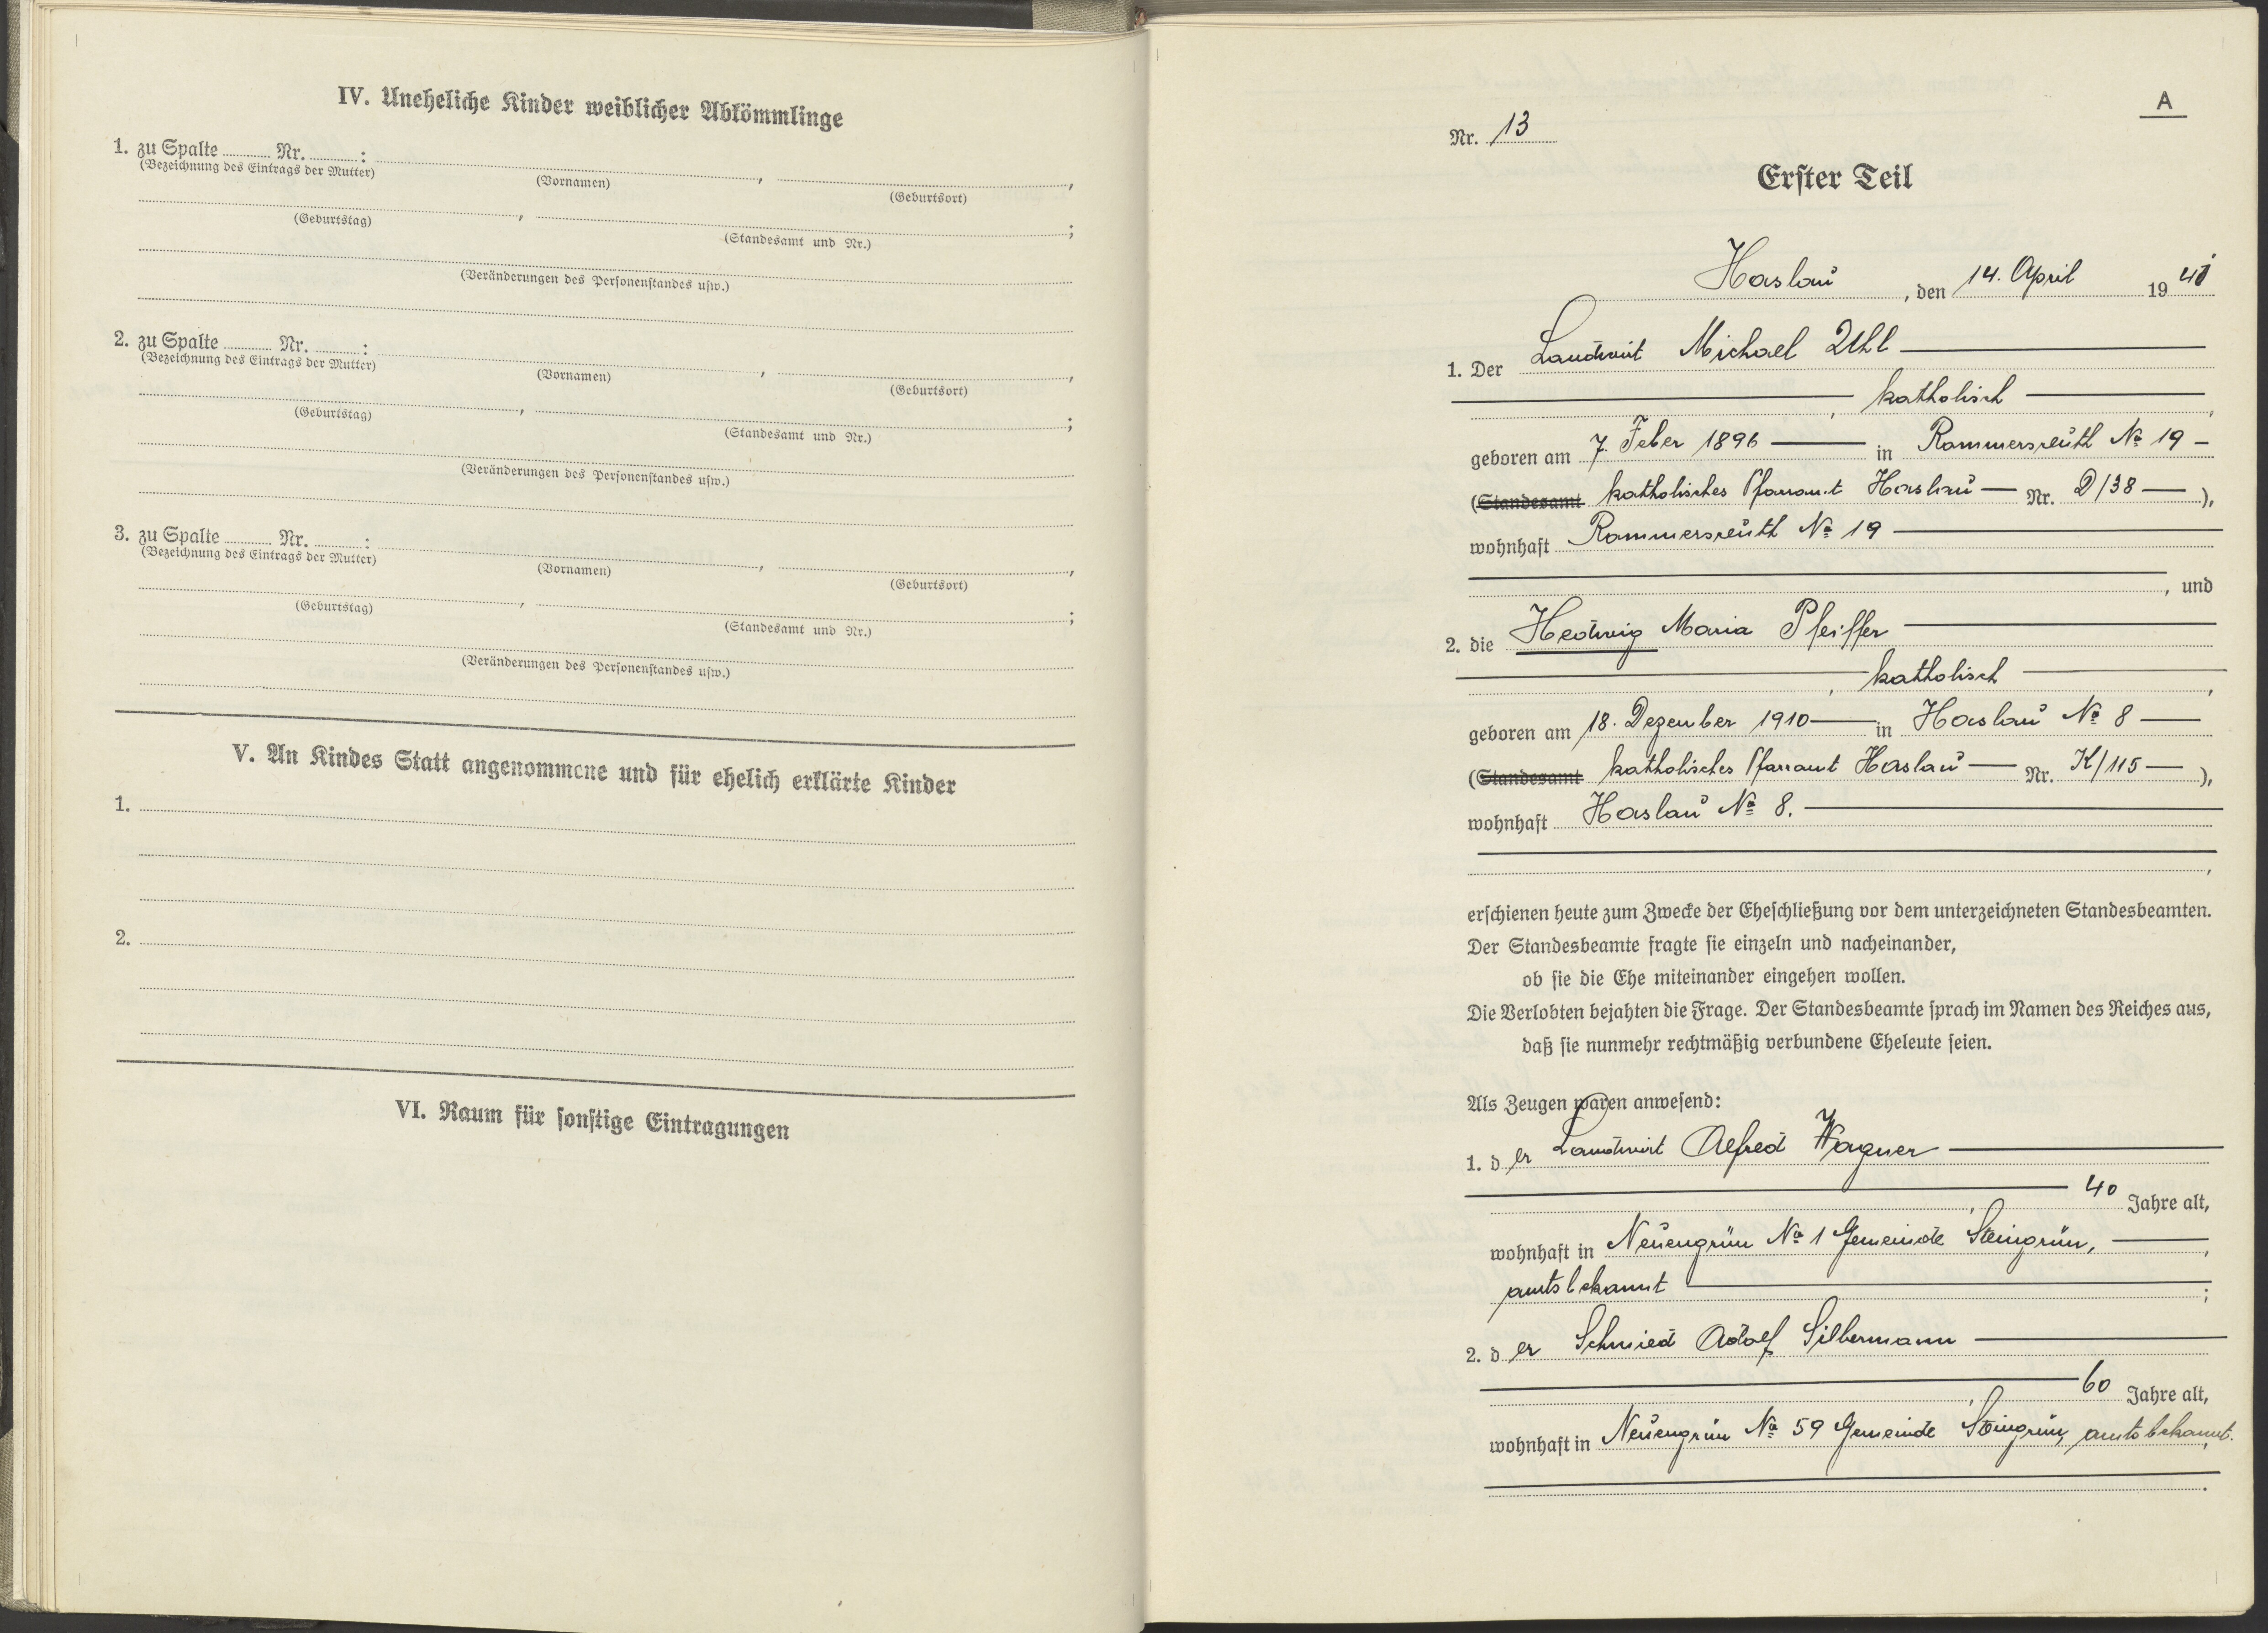 IV. Uneheliche Kinder weiblicher Abkömmlinge
1. zu Spalte Nr. : , ,
(Bezeichnung des Eintrags der Mutter) (Vornamen) (Geburtsort)
, ;
(Geburtstag) (Standesamt und Nr.)
(Veränderungen des Personenstandes usw.)
2. zu Spalte Nr. : , ,
(Bezeichnung des Eintrags der Mutter) (Vornamen) (Geburtsort)
, ;
(Geburtstag) (Standesamt und Nr.)
(Veränderungen des Personenstandes usw.)
3. zu Spalte Nr. : , ,
(Bezeichnung des Eintrags der Mutter) (Vornamen) (Geburtsort)
, ;
(Geburtstag) (Standesamt und Nr.)
(Veränderungen des Personenstandes usw.)
V. An Kindes Statt angenommene und für ehelich erklärte Kinder
1.
2.
VI. Raum für sonstige Eintragungen
A
Nr. 13
Erster Teil
Haslau, den 14. April 1941
1. Der Landwirt Michael Uhl
, katholisch,
geboren am 7. Feber 1896 in Rommersreuth № 19
(Standesamt katholisches Pfarramt Haslau Nr. D/38),
wohnhaft Rommersreuth № 19
, und
2. die Hedwig Maria Pfeiffer
, katholisch,
geboren am 18. Dezember 1910 in Haslau № 8
(Standesamt katholisches Pfarramt Haslau Nr. K/115),
wohnhaft Haslau № 8.
,
erschienen heute zum Zwecke der Eheschließung vor dem unterzeichneten Standesbeamten.
Der Standesbeamte fragte sie einzeln und nacheinander,
ob sie die Ehe miteinander eingehen wollen.
Die Verlobten bejahten die Frage. Der Standesbeamte sprach im Namen des Reiches aus,
daß sie nunmehr rechtmäßig verbundene Eheleute seien.
Als Zeugen waren anwesend:
1. der Landwirt Alfred Wagner
, 40 Jahre alt,
wohnhaft in Neuengrün № 1 Gemeinde Steingrün,
amtsbekannt ;
2. der Schmied Adolf Silbermann
, 60 Jahre alt,
wohnhaft in Neuengrün № 59 Gemeinde Steingrün, amtsbekannt.
.